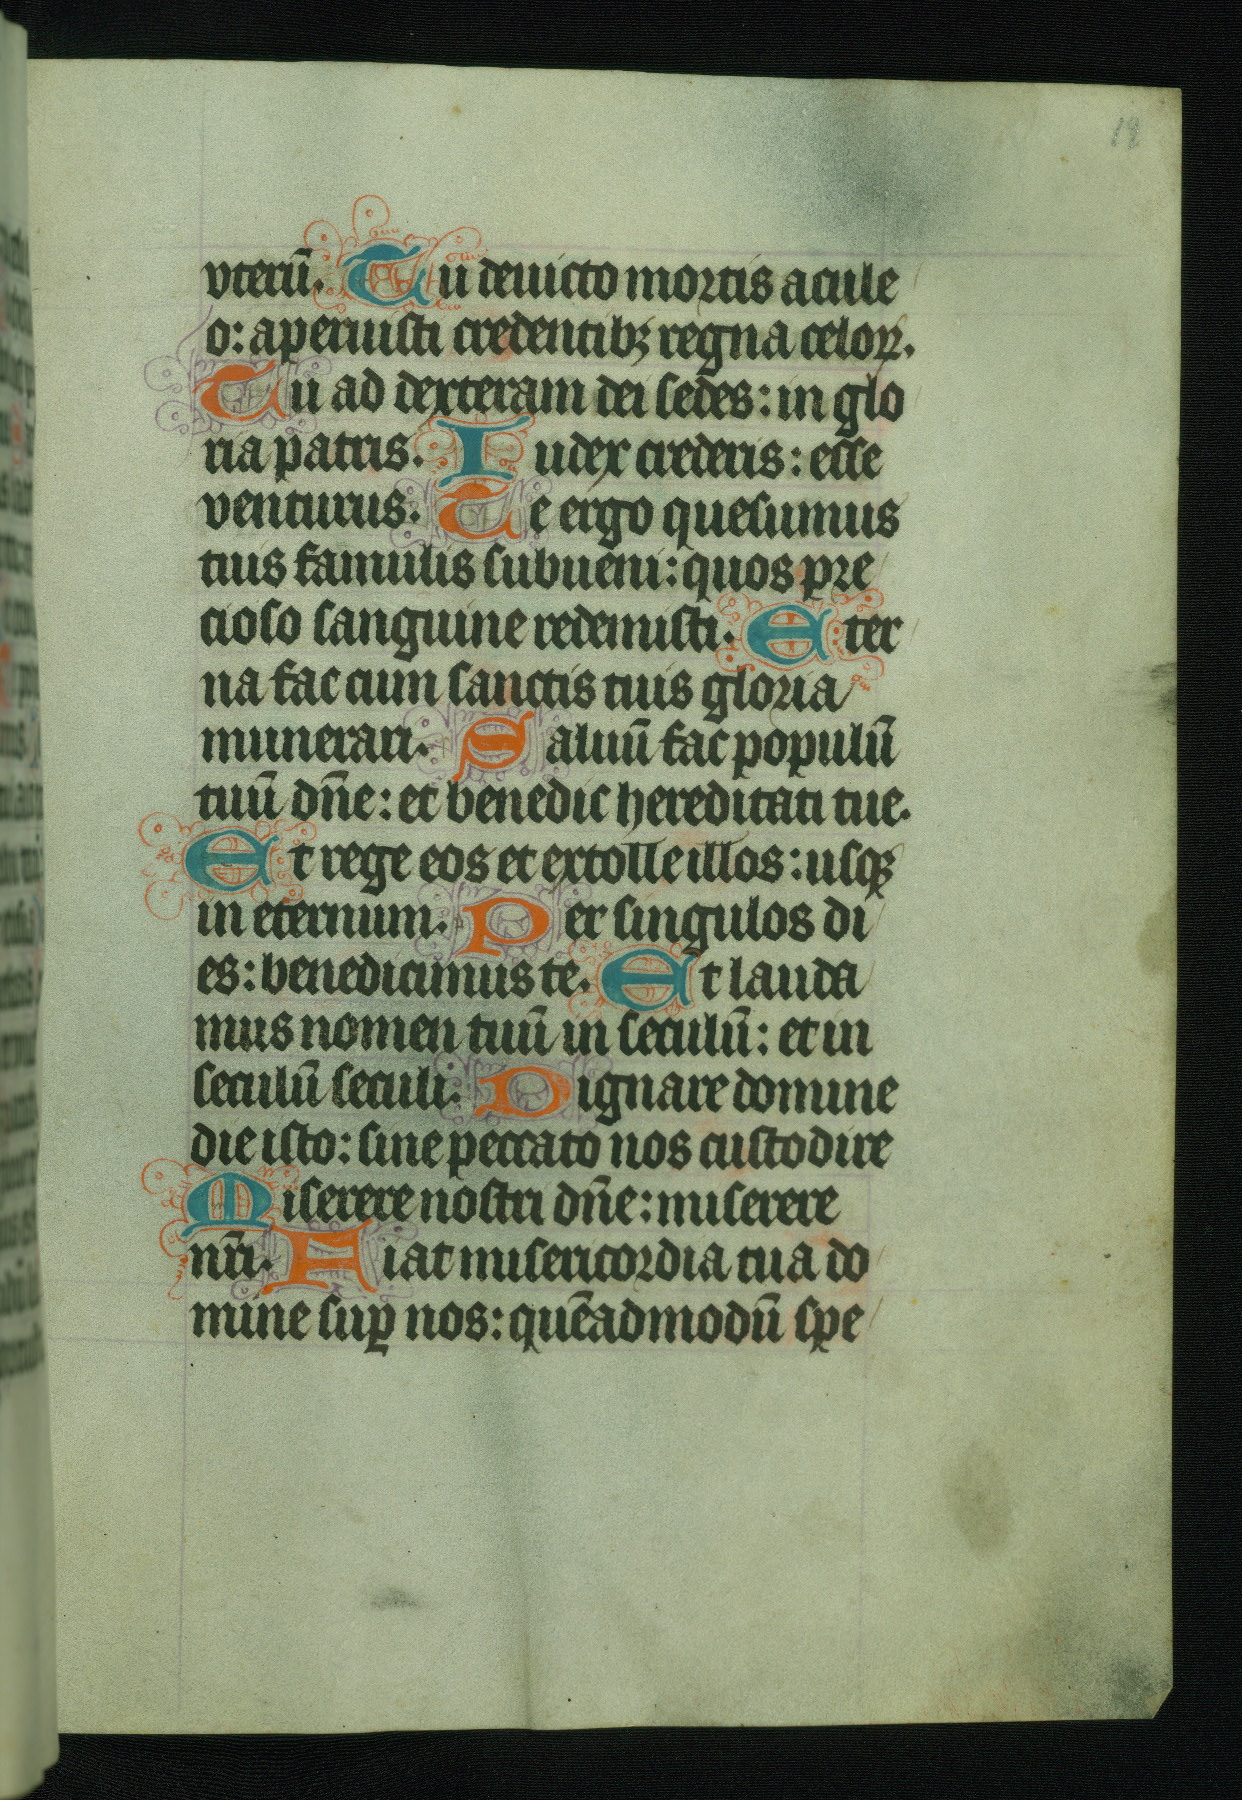 19
vterū. Tu deuicto mortis acule
o: aperuisti credentibꝫ regna celoꝝ.
Tu ad dexteram dei sedes: in glo
ria patris. Iudex crederis: esse
venturus. Te ergo quesumus
tuis famulis subueni: quos pre
cioso sanguine redemisti. Eter
na fac cum sanctis tuis gloria
munerari. Saluū fac populū
tuū dn̄e: et benedic hereditati tue.
Et rege eos et extolle illos: usqꝫ
in eternum. Per singulos di
es: benedicimus te. Et lauda
mus nomen tuū in seculū: et in
seculū seculi. Dignare domine
die isto: sine peccato nos custodire
Miserere nostri dn̄e: miserere
nr̄i. Fiat misericordia tua do
mine suꝑ nos: quēadmodū spe